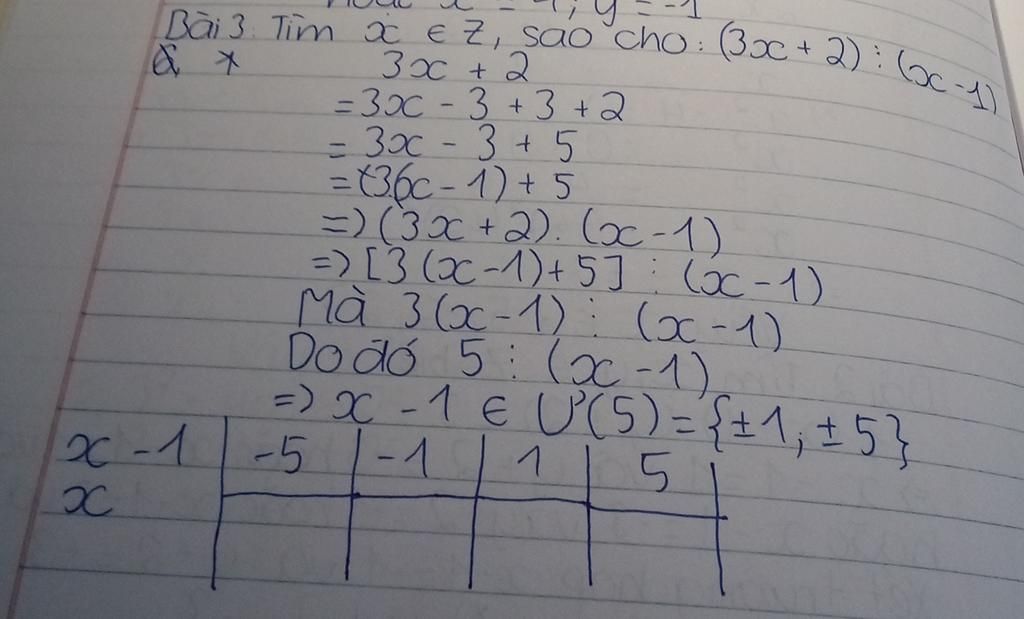 x = -1; y = -1
Bài 3: Tìm x ∈ Z, sao cho: (3x + 2) ⋮ (x - 1)
* 3x + 2
= 3x - 3 + 3 + 2
= 3x - 3 + 5
= 3(x - 1) + 5
=> (3x + 2) ⋮ (x - 1)
=> [3(x - 1) + 5] ⋮ (x - 1)
Mà 3(x - 1) ⋮ (x - 1)
Do đó 5 ⋮ (x - 1)
=> x - 1 ∈ Ư(5) = {±1; ±5}
x - 1 | -5 | -1 | 1 | 5
x